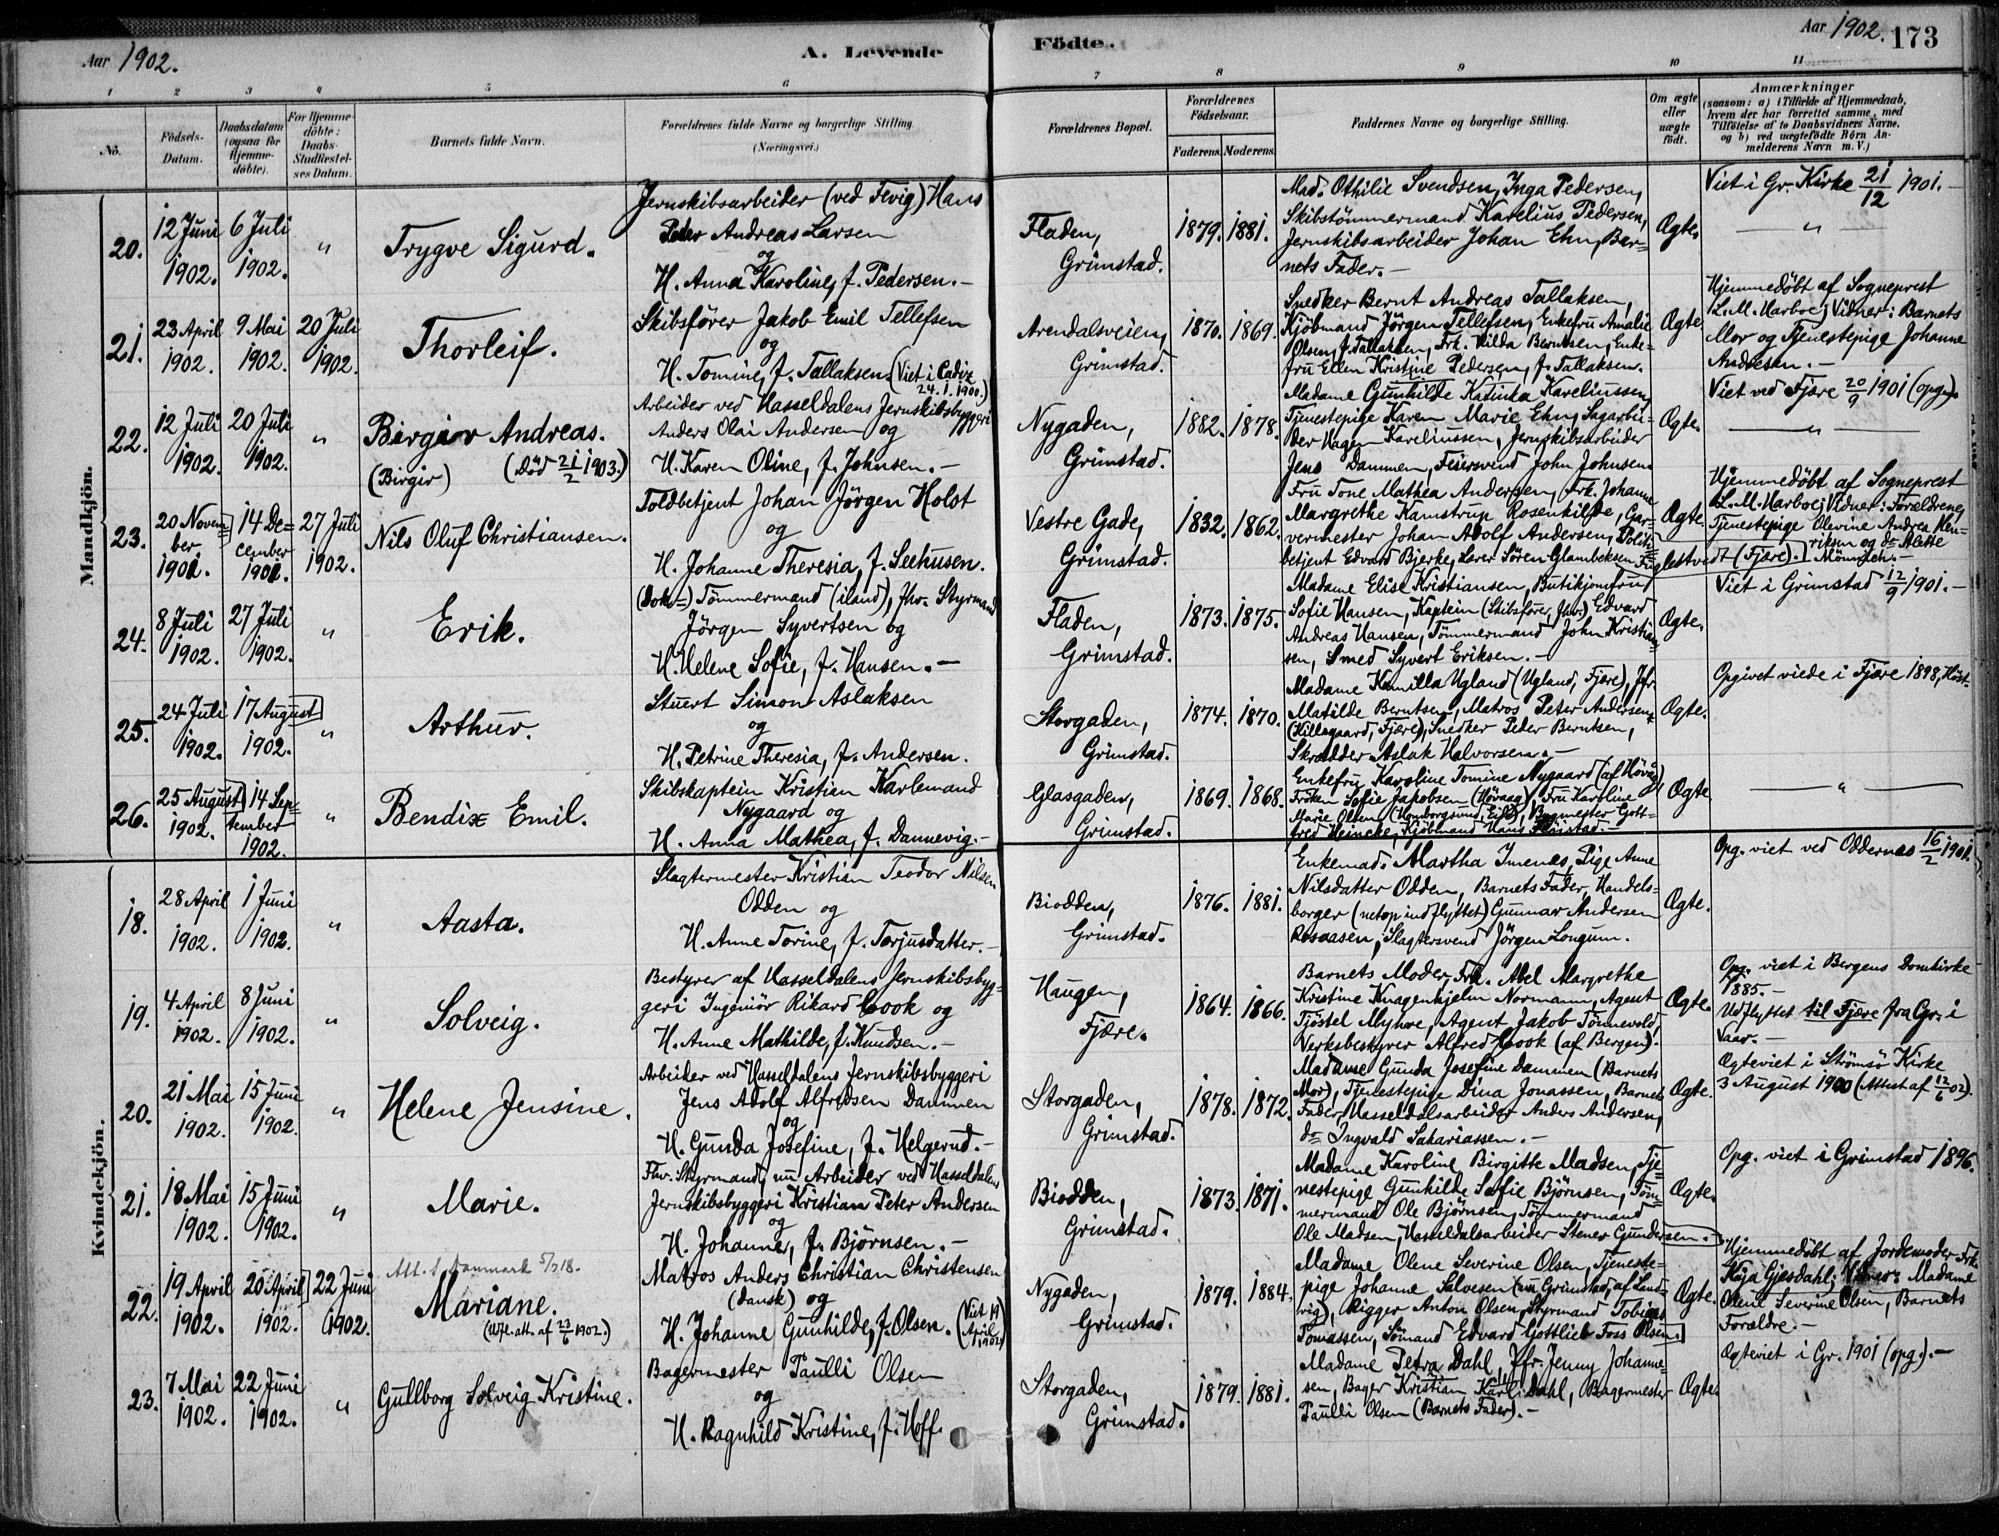 Aar 1902.
A. Levende
Födte.
Aar 1902.
173
1 2 3 4 5 6 7 8 9 10 11
No.
Födsels-Datum.
Daabsdatum (ogsaa for Hjemmedöbte).
For Hjemmedöbte: Daabs-Stadfæstelses Datum.
Barnets fulde Navn.
Forældrenes fulde Navne og borgerlige Stilling. (Næringsvei.)
Forældrenes Bopæl.
Forældrenes Födselsaar.
Faderens. Moderens.
Faddernes Navne og borgerlige Stilling.
Om ægte eller uægte födt.
Anmærkninger
(saasom: a) i Tilfælde af Hjemmedaab, hvem der har forrettet samme, med Tilföielse af to Daabsvidners Navne, og b) ved uægtefödte Börn Anmelderens Navn m. V.)
Mandkjön.
20. 12 Juni 1902. 6 Juli 1902. " Trygve Sigurd.
Jernskibsarbeider (ved Fevig) Hans
Peder Andreas Larsen
og
H. Anna Karoline, f. Pedersen.-
Fladen, Grimstad. 1879. 1881.
Mad. Othilie Svendsen, Inga Pedersen,
Skibstömmermand Karelius Pedersen,
Jernskibsarbeider Johan Ehn, Bar-
nets Fader.-
Ægte.
Viet i Gr. Kirke 21/12 1901.-
"
21. 23 April 1902. 9 Mai 1902. 20 Juli 1902. Thorleif.
Skibsförer Jakob Emil Tellefsen
og
H. Tomine, f. Tallaksen. (Viet i Cadiz 24.1.1900.)
Arendalsveien, Grimstad. 1870. 1869.
Snedker Bernt Andreas Tallaksen,
Kjöbmand Jörgen Tellefsen, Enkefru Amalie
Olsen, f. Tallaksen, Frk. Hilda Berntsen, Enke-
fru Ellen Kristine Pedersen, f. Tallaksen.
Ægte.
Hjemmedöbt af Sogneprest
L. M. Harboe; Vidner: Barnets
Mor og Tjenestepige Johanne
Andresen.-
22. 12 Juli 1902. 20 Juli 1902. " Birgir Andreas.
(Birgir) (Död 21/2 1903.)
Arbeider ved Hasseldalens Jernskibsbyggeri
Anders Olai Andersen og
H. Karen Oline, f. Johnsen.-
Nygaden, Grimstad. 1882. 1878.
Madame Gunhilde Katinka Karelinssen,
Tjenestepige Karen Marie Ehn, Sagarbei-
der Hagen Karelinussen, Jernskibsarbeider
Jens Dammen, Feiersvend John Johnsen.
Ægte.
Viet ved Fjære 20/9 1901 (opg.).
"
23. 20 November 1901. 14 December 1901. 27 Juli 1902. Nils Oluf Christiansen.
Toldbetjent Johan Jörgen Holst
og
H. Johanne Theresia, f. Seehusen.
Vestre Gade, Grimstad. 1832. 1862.
Fru Tone Mathea Andersen, Frk. Johanne
Margrethe Kamstrup Rosenkilde, Gar-
vermester Johan Adolf Andersen, Politi-
betjent Edvard Bjerke, Lærer Sören Glambeksen Fuglestvedt (Fjære).
Ægte.
Hjemmedöbt af Sogneprest
L. M. Harboe; Vidner: Forældrene,
Tjenestepige Olevine Andrea Hen-
riksen og do Alette
Mönnich.-
24. 8 Juli 1902. 27 Juli 1902. " Erik.
(Dok-) Tömmermand (iland), fhv. Styrmand
Jörgen Syvertsen og
H. Helene Sofie, f. Hansen.-
Fladen, Grimstad. 1873. 1875.
Madame Elise Kristiansen, Butikjomfru
Sofie Hansen, Kaptein (Skibsförer, fhv.) Edvard
Andreas Hansen, Tömmermand John Kristian-
sen, Smed Syvert Eriksen.-
Ægte.
Viet i Grimstad 12/9 1901.-
25. 24 Juli 1902. 17 August 1902. " Arthur.
Stuert Simon Aslaksen
og
H. Petrine Theresia, f. Andersen.
Storgaden, Grimstad. 1874. 1870.
Madame Kamilla Ugland (Ugland, Fjære), Jfr.
Matilde Berntsen, Matros Peter Andersen
(Hillegaard, Fjære), Snedker Peder Berntsen,
Skrædder Aslak Halvorsen.-
Ægte.
Opgivet viede i Fjære 1898, Höst-
26. 25 August 1902. 14 September 1902. " Bendix Emil.
Skibskaptein Kristian Karlemand
Nygaard og
H. Anna Mathea, f. Dannevig.-
Glasgaden, Grimstad. 1869. 1868.
Enkefru Karoline Tomine Nygaard (af Hövåg),
Fröken Sofie Jakobsen (Hövaag), Fru Karoline
Marie Olsen (Homborgsund, Eide), Bagmester Gott-
fred Heincke, Kjöbmand Hans Fjeistad.-
Ægte
"
Kvindekjön.
18. 28 April 1902. 1 Juni 1902. " Aasta.
Slagtermester Kristian Teodor Nilsen
Odden og
H. Anne Torine, f. Torjusdatter.-
Biodden, Grimstad. 1876. 1881.
Enkemad. Martha Imenes, Pige Anne
Nilsdatter Odden, Barnets Fader, Handels-
borger (netop indflyttet) Gunnar Andersen
Rosaasen, Slagtersvend Jörgen Longum.
Ægte.
Opg. viet ved Oddernes 16/2 1901.
19. 4 April 1902. 8 Juni 1902. " Solveig.
Bestyrer af Hasseldalens Jernskibsbyg-
geri Ingeniör Rikard Cook og
H. Anne Mathilde, f. Knudsen.-
Haugen, Fjære. 1864. 1866.
Barnets Moder, Frk. Abel Margrethe
Kristine Knagenhjelm Normann, Agent
Tjöstel Myhre, Agent Jakob Tönnevold,
Verksbestyrer Alfred Cook (af Bergen).
Ægte.
Opg. viet i Bergens Domkirke
1885.-
Udflyttet til Fjære fra Gr. i
Vaar.-
20. 21 Mai 1902. 15 Juni 1902. " Helene Jensine.
Arbeider ved Hasseldalens Jernskibsbyggeri
Jens Adolf Alfredsen Dammen
og
H. Gunda Josefine, f. Helgerud.-
Storgaden, Grimstad. 1878. 1872.
Madame Gunda Josefine Dammen (Barnets
Mor), Tjenestepige Dina Jonassen, Barnets
Fader, Hasseldalsarbeider Anders Andersen,
do Ingvald Sakariassen.-
Ægte.
Ægteviet i Strömsö Kirke
3 August 1900 (Attest af 12/6 02).
21. 18 Mai 1902. 15 Juni 1902. " Marie.
Fhv. Styrmand, nu Arbeider ved Hasseldalens
Jernskibsbyggeri Kristian Peter Andersen
og
H. Johanne, f. Björnsen.-
Biodden, Grimstad. 1873. 1871.
Madame Karoline Birgitte Madsen, Tje-
nestepige Gunhilde Sofie Björnsen, Töm-
mermand Ole Björnsen, Tömmermand
Ole Madsen, Hasseldalsarbeider Stener Gundersen.-
Ægte.
Opg. viet i Grimstad 1896.
22. 19 April 1902. 20 April 1902. 22 Juni 1902. Att. t. Danmark 5/7 18.
Mariane.
(Udfl.-att. af 23/6 1902.)
Matros Anders Christian Christensen
(dansk) og
H. Johanne Gunhilde, f. Olsen. (Viet 19 April 1902)
Nygaden, Grimstad. 1879. 1884.
Madame Olene Severine Olsen, Tjeneste-
pige Johanne Salvesen (nu Grimstad, af Land-
vig), Rigger Anton Olsen, Styrmand Tobias
Tomassen, Sömand Edvard Gottlieb Foss Olsen.
Ægte.
Hjemmedöbt af Jordemoder Frk.
Maja Gjesdahl; Vidner: Madame
Olene Severine Olsen, Barnets
Forældre.-
23. 7 Mai 1902. 22 Juni 1902. " Gullborg Solveig Kristine.
Bagermester Paulli Olsen
og
H. Ragnhild Kristine, f. Hoff.
Storgaden, Grimstad. 1879. 1881.
Madame Petra Dahl, Jfr. Jenny Johanne-
sen, Bager Kristian Karl Dahl, Bagermester
Paulli Olsen (Barnets Fader).-
Ægte.
Ægteviet i Gr. 1901 (opg.).-